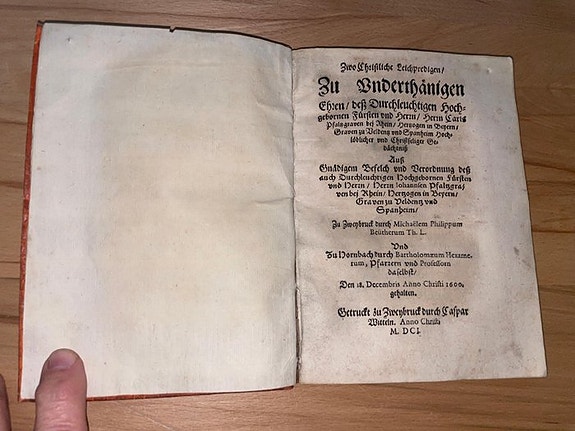 Zwo Christliche Leichpredigen/
Zu Vnderthänigen
Ehren/ deß Durchleuchtigen Hoch-
gebornen Fürsten vnd Herrn/ Herrn Carls
Pfaltzgraven bej Rhein/ Hertzogen in Beyern/
Graven zu Veldentz vnd Spanheim Hoch
löblicher vnd Christseliger Ge-
dächtniß
Auß
Gnädigem Befelch vnd Verordnung deß
auch Durchleuchtigen Hochgebornen Fürsten
vnd Herrn/ Herrn Iohannsen Pfaltzgra-
ven bej Rhein/ Hertzogen in Beyern/
Graven zu Veldentz vnd
Spanheim/
Zu Zweybruck durch Michaëlem Philippum
Beütherum Th. L.
Vnd
Zu Hornbach durch Bartholomæum Hexame-
rum, Pfarrern vnd Professorn
daselbst/
Den 18. Decembris Anno Christi 1600.
gehalten.
Getruckt zu Zweybruck durch Caspar
Witteln. Anno Christi
M. DCI.